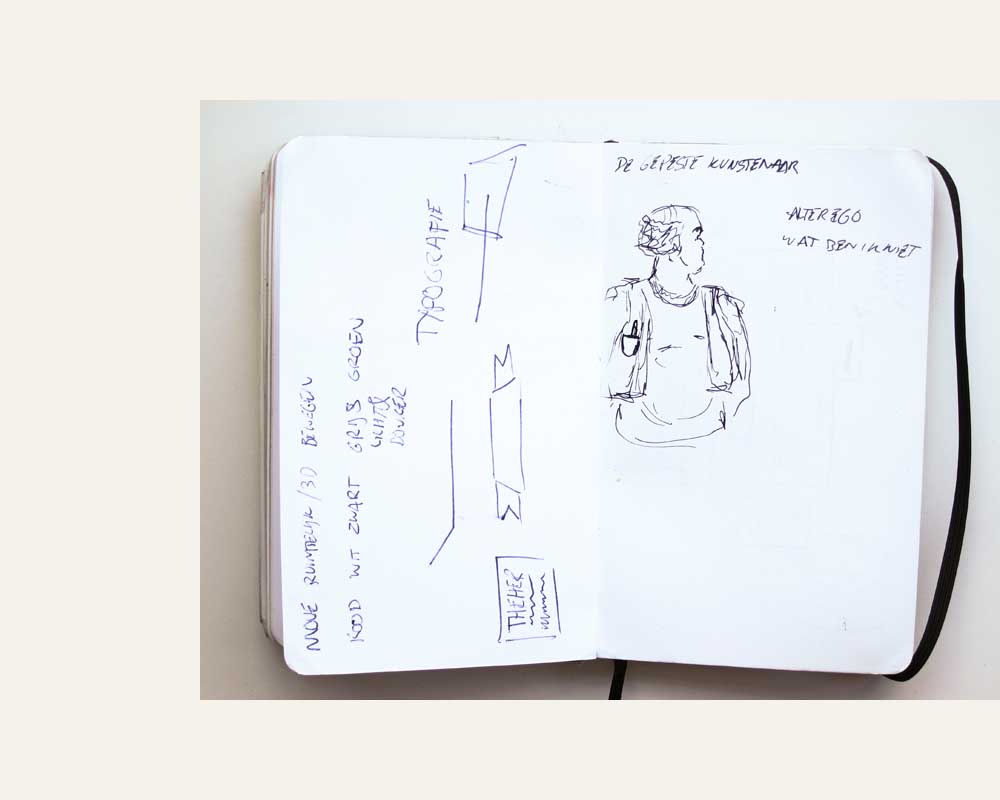 RUIMTELIJK / 3D BEWEGEN
ROOD WIT ZWART GRIJS GROEN
LICHT &
DONKER
TYPOGRAFIE
THEMER
DE GEPESTE KUNSTENAAR
- ALTER EGO
WAT BEN IK NIET